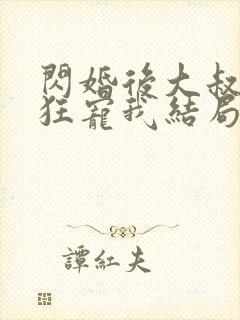 閃婚後大叔
狂寵我結局
譚紅夫